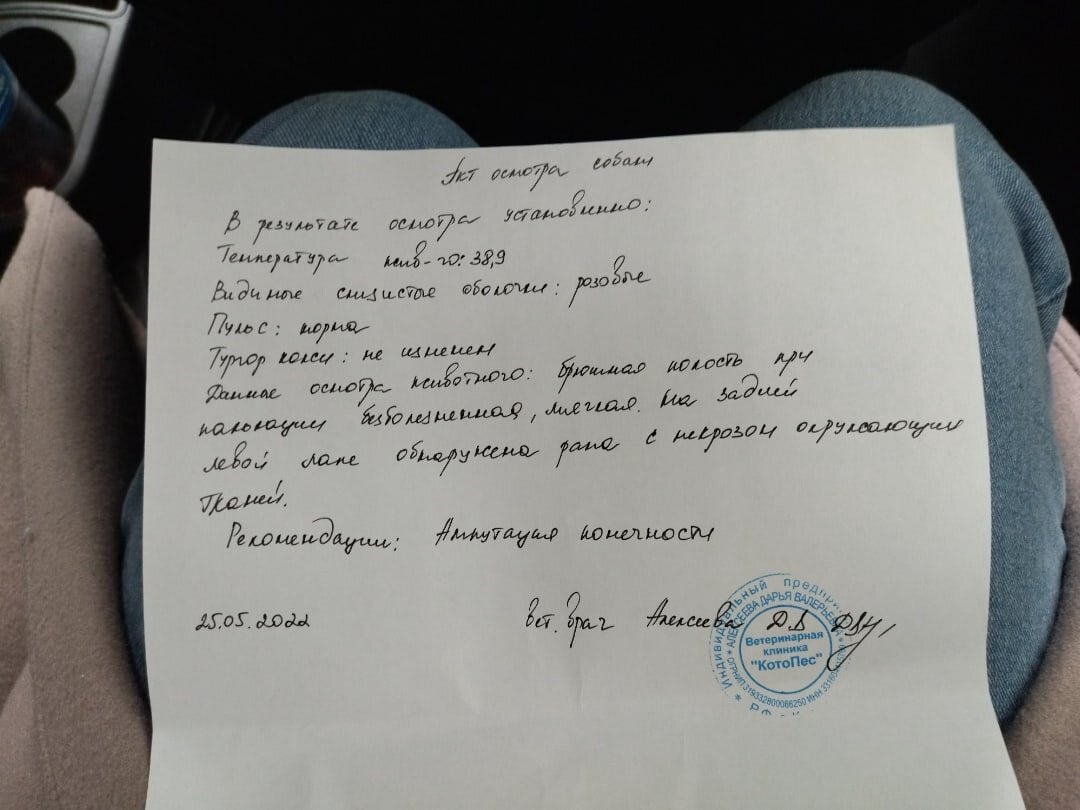 Акт осмотра собаки
В результате осмотра установленно:
Температура жив-го: 38,9
Видимые слизистые оболочки: розовые
Пульс: норма
Тургор кожи: не изменен
Данные осмотра животного: брюшная полость при
пальпации безболезненная, мягкая. На задней
левой лапе обнаружена рана с некрозом окружающих
тканей.
Рекомендации: Ампутация конечности
25.05.2022 Вет. Врач Алексеева Д.В
Индивидуальный
АЛЕКСЕЕВА ДАРЬЯ ВАЛЕРЬЕВНА
Ветеринарная
клиника
"КотоПес"